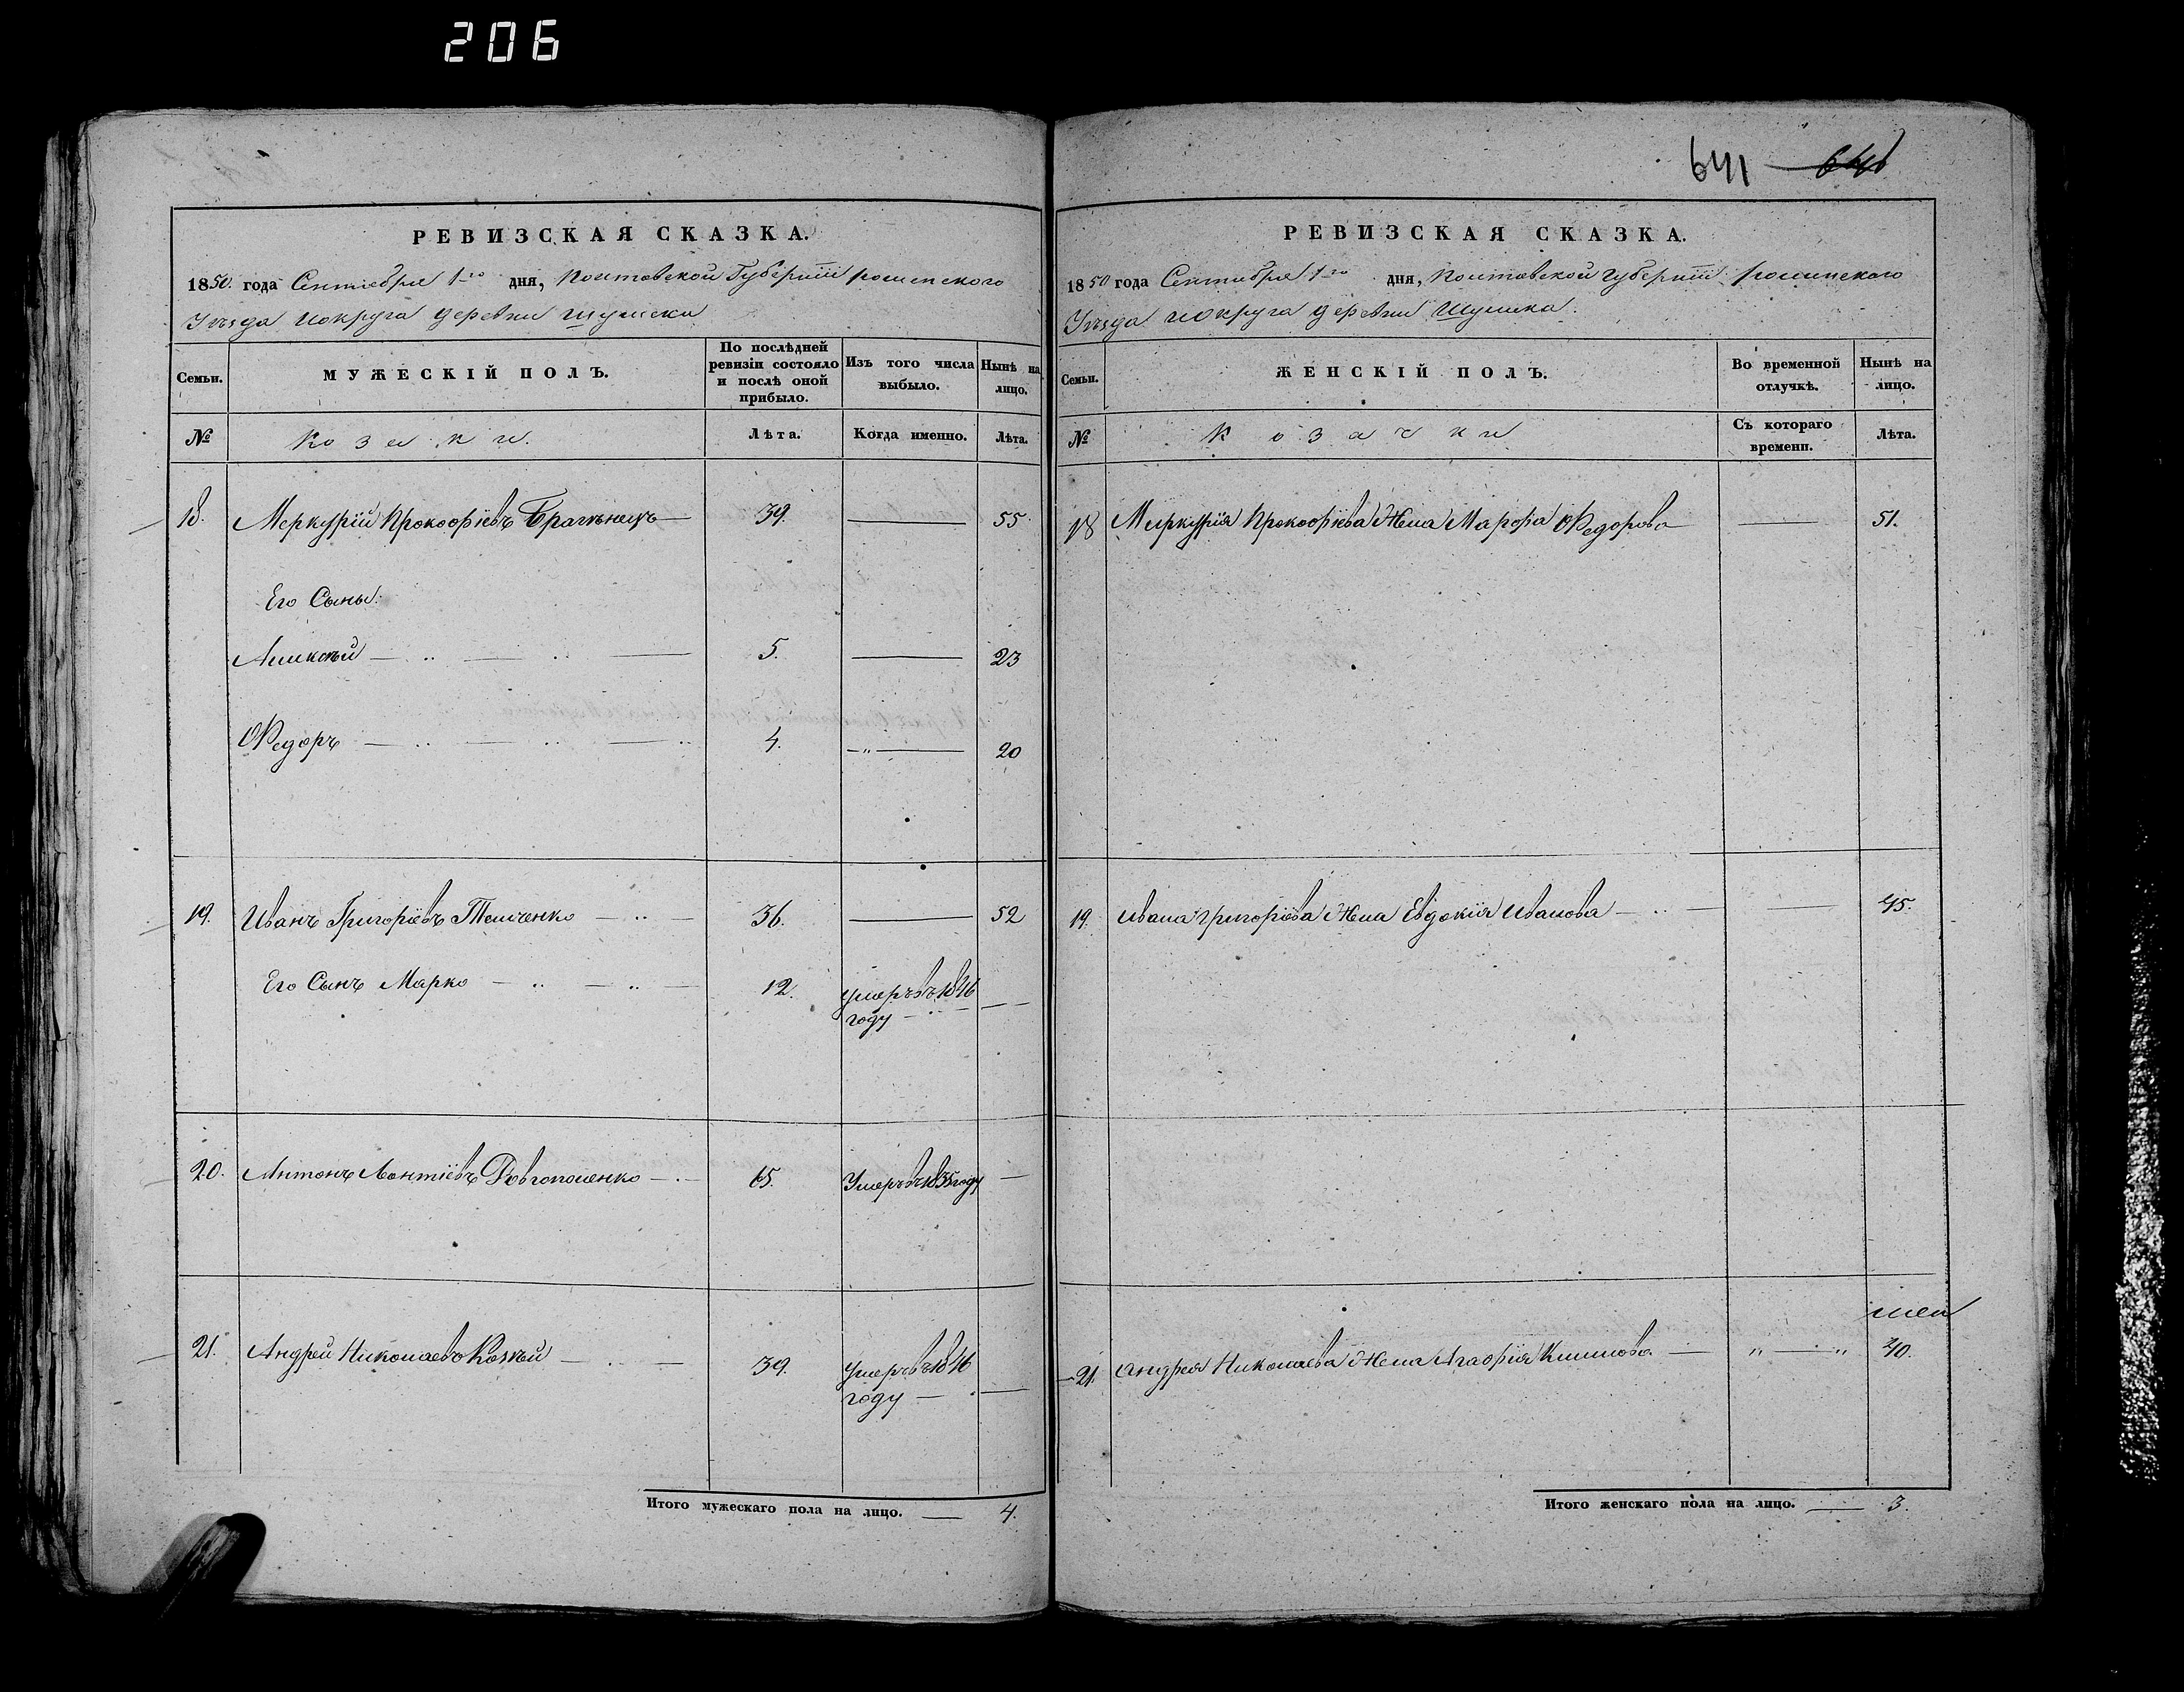 206
641 646
РЕВИЗСКАЯ СКАЗКА.
1850. года Сентября 1го дня, Полтавской Губерніи роменского
Уѣзда иокруга деревни Шумска
Семьи. МУЖЕСКІЙ ПОЛЪ. По послѣдней ревизіи состояло и послѣ оной прибыло. Изъ того числа выбыло. Нынѣ на лицо.
№ Козаки. Лѣта. Когда именно. Лѣта.
18. Меркурій Прокофіевъ 39. 55
Его Сыны:
Алексѣй 5. 23
Ѳедоръ 4. 20
19. Иванъ Григоріевъ Темченко 36. 52
Его Сынъ Марко 12. умеръ въ 1846
году
20. Антонъ Леонтіевъ Довгополенко 65. Умеръ въ 1835 году
21. Андрей Николаевъ 39. умеръ въ 1846
году
Итого мужескаго пола на лицо. 4.
РЕВИЗСКАЯ СКАЗКА.
1850 года Сентября 1го дня, Полтавской губерніи роменского
Уѣзда иокруга деревни Шумска.
Семьи. ЖЕНСКІЙ ПОЛЪ. Во временной отлучкѣ. Нынѣ на лицо.
№ Козачки Съ котораго времени. Лѣта.
18 Меркурія Прокофіева Жена Марфа Ѳедорова 51.
19. Ивана Григоріева Жена Евдокія Иванова 45.
21. Андрея Николаева Жена Агафія Климова 40.
Итого женскаго пола на лицо. 3.